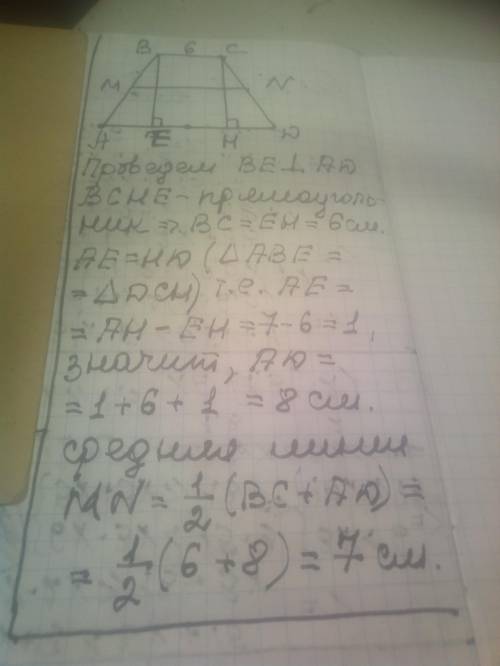 B 6 C
M N
A E H D
Проведем BE⊥AD
BCHE - прямоуголь-
ник => BC=EH=6см.
AE=HD (△ABE=
=△DCH) т.е. AE=
=AH-EH=7-6=1,
значит, AD=
=1+6+1=8 см.
средняя линия
MN=1/2(BC+AD)=
=1/2(6+8)=7 см.